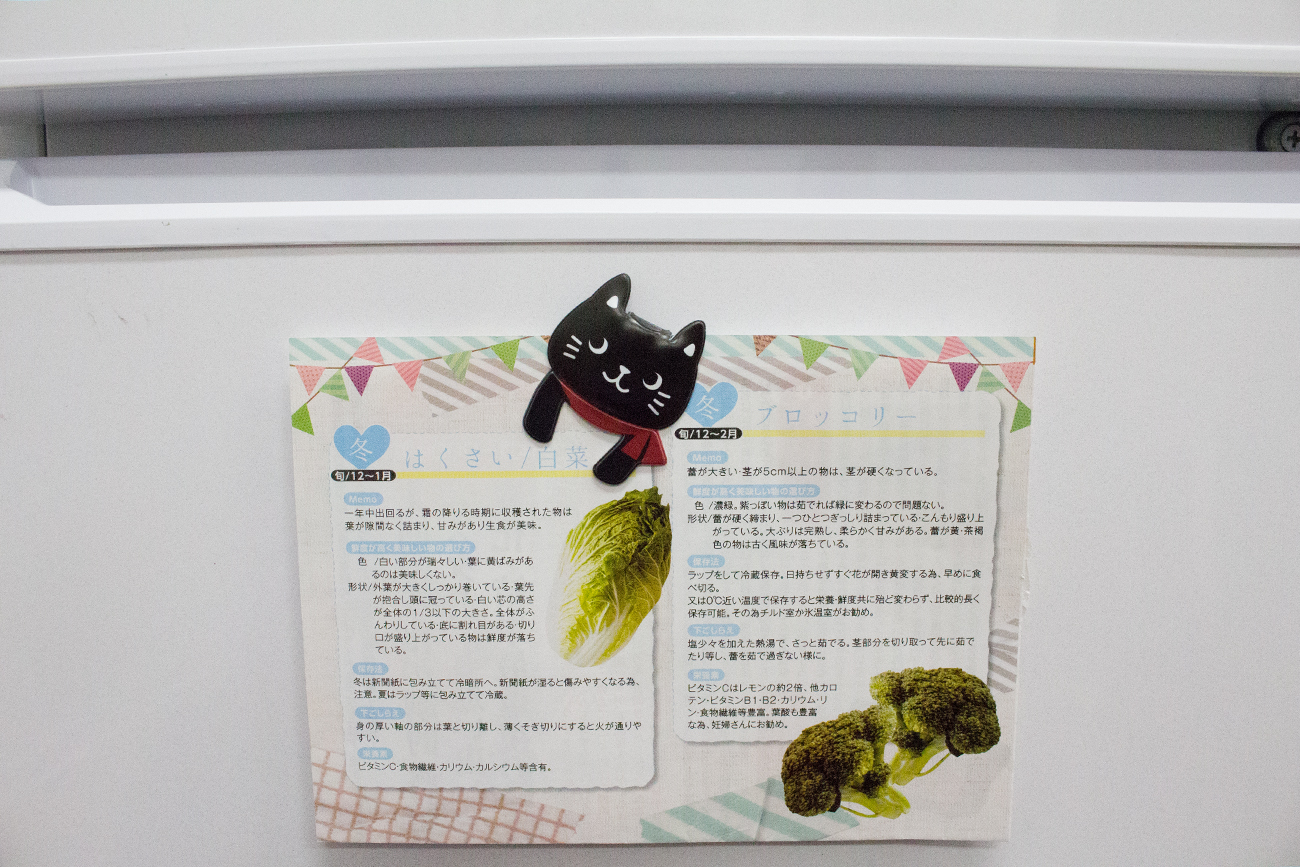 冬
はくさい/白菜
旬/12〜1月
Memo
一年中出回るが、霜の降りる時期に収穫された物は
葉が隙間なく詰まり、甘みがあり生食が美味。
鮮度が高く美味しい物の選び方
色 /白い部分が瑞々しい・葉に黄ばみがあ
るのは美味しくない。
形状/外葉が大きくしっかり巻いている・葉先
が抱合し頭に冠っている・白い芯の高さ
が全体の1/3以下の大きさ。全体がふ
んわりしている・底に割れ目がある・切り
口が盛り上がっている物は鮮度が落ち
ている。
保存法
冬は新聞紙に包み立てて冷暗所へ。新聞紙が湿ると傷みやすくなる為、
注意。夏はラップ等に包み立てて冷蔵。
下ごしらえ
身の厚い軸の部分は葉と切り離し、薄くそぎ切りにすると火が通りや
すい。
栄養素
ビタミンC・食物繊維・カリウム・カルシウム等含有。
冬
ブロッコリー
旬/12〜2月
Memo
蕾が大きい・茎が5cm以上の物は、茎が硬くなっている。
鮮度が高く美味しい物の選び方
色 /濃緑。紫っぽい物は茹でれば緑に変わるので問題ない。
形状/蕾が硬く締まり、一つひとつぎっしり詰まっている・こんもり盛り上
がっている。大ぶりは完熟し、柔らかく甘みがある。蕾が黄・茶褐
色の物は古く風味が落ちている。
保存法
ラップをして冷蔵保存。日持ちせずすぐ花が開き黄変する為、早めに食
べ切る。
又は0℃近い温度で保存すると栄養・鮮度共に殆ど変わらず、比較的長く
保存可能。その為チルド室か氷温室がお勧め。
下ごしらえ
塩少々を加えた熱湯で、さっと茹でる。茎部分を切り取って先に茹で
たり等し、蕾を茹で過ぎない様に。
栄養素
ビタミンCはレモンの約2倍、他カロ
テン・ビタミンB1・B2・カリウム・リ
ン・食物繊維等豊富。葉酸も豊富
な為、妊婦さんにお勧め。